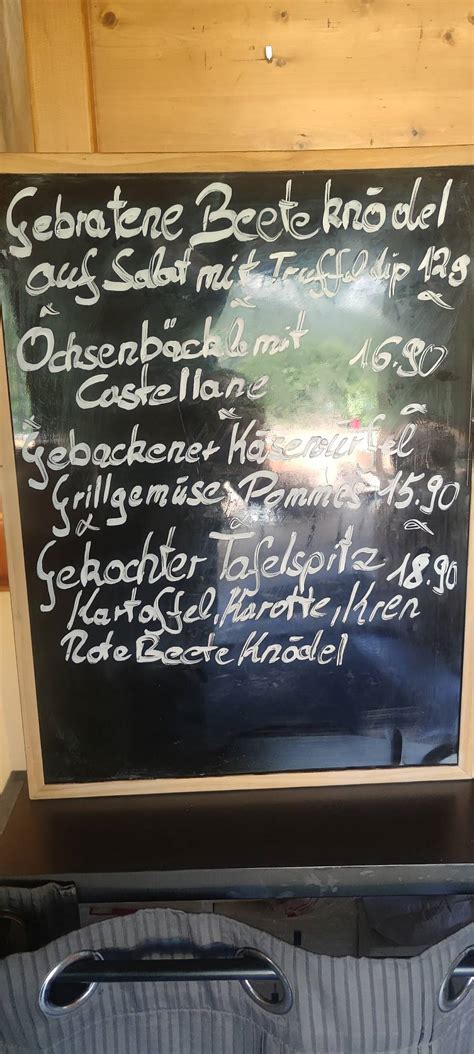 Gebratene Beeteknödel
auf Salat mit Trüffeldip 12,9
Ochsenbäckle mit 16.90
Castellane
Gebackener Käsewürfel
Grillgemüse, Pommes 15.90
Gekochter Tafelspitz 18.90
Kartoffel, Karotte, Kren
Rote Beete Knödel